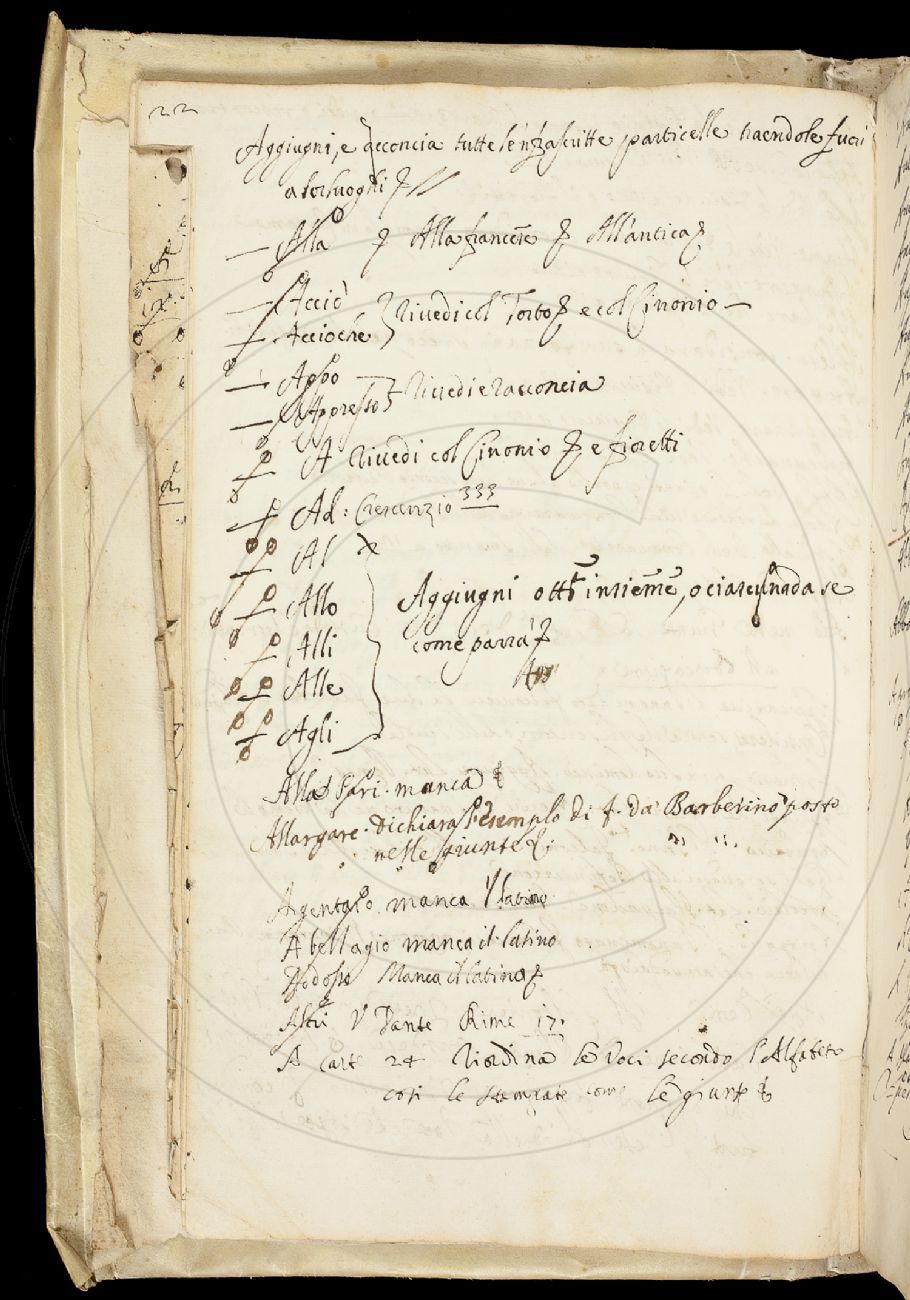 22
Aggiugni, e acconcia tutte l'infrascritte particelle traendole fuori
a lor luoghi
Alla Alla francese All'antica
Acciò
Acciochè Rivedi col Torto e col Cinonio
Appo
Appresso Rivedi e racconcia
A Rivedi col Cinonio e fioretti
Ad: Crescenzio 333
Al
Allo Aggiugni insieme, o ciascuna da se
Alli come parrà
Alle
Agli
manca
Allargare. dichiara l'esemplo di f. da Barberino posto
nelle giunte
manca il latino
A bell'agio manca il latino
Addosso Manca il latino
V Dante Rime 17.
A carte 24 Riordina le Voci secondo l'Alfabeto
così le stampate come le giunte